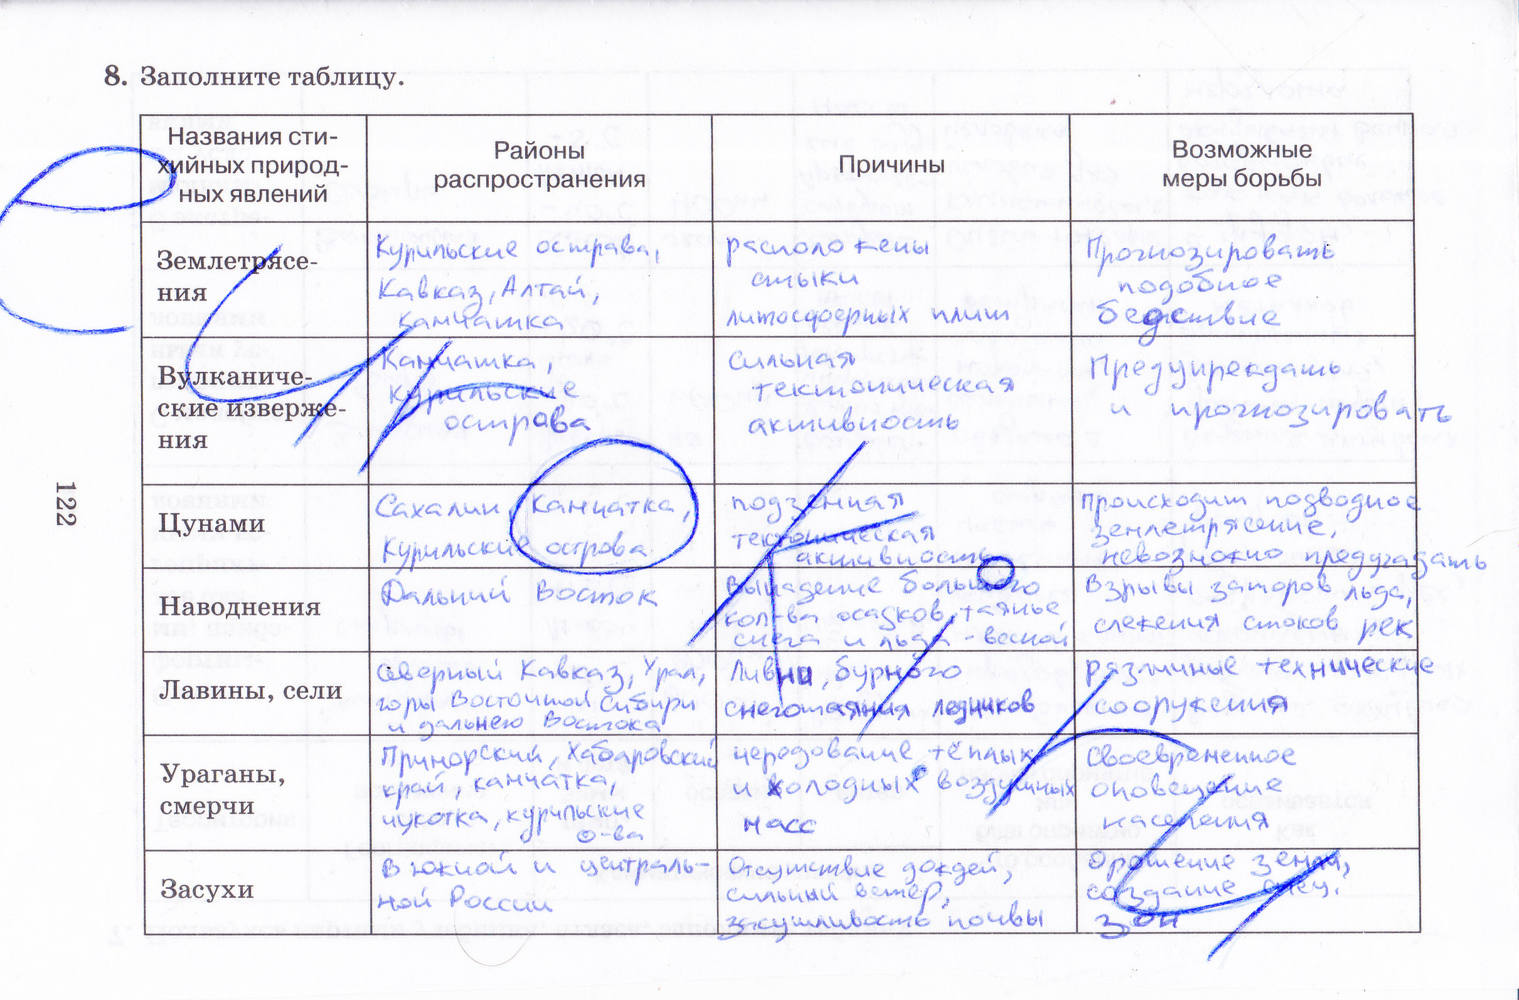 8. Заполните таблицу.
Названия сти-
хийных природ-
ных явлений
Районы
распространения
Причины
Возможные
меры борьбы
Землетрясе-
ния
Курильские острава,
Кавказ, Алтай,
камчатка
расположены
стыки
литосферных плит
Прогнозировать
подобное
бедствие
Вулканиче-
ские изверже-
ния
Камчатка,
Курильские
острова
сильная
тектоническая
активность
Предупреждать
и прогнозировать
Цунами
Сахалин, Камчатка,
Курильские острова
подземная
тектоническая
активность
Происходит подводное
землетрясение,
невозможно предугадать
Наводнения
Дальний Восток
Выпадение большого
кол-ва осадков, таянье
снега и льда - весной
Взрывы заторов льда,
слежения стоков рек
Лавины, сели
Северный Кавказ, Урал,
горы Восточной Сибири
и дальнего Востока
Ливни, бурного
снеготаяния ледников
различные технические
сооружения
Ураганы,
смерчи
Приморский, Хабаровский
край, камчатка,
чукотка, курильские
о-ва
чередование тёплых
и холодных воздушных
масс
Своевременное
оповещение
населения
Засухи
В южной и централь-
ной России
Отсутствие дождей,
сильный ветер,
засушливость почвы
Орошение земли,
создание спец.
зон
122